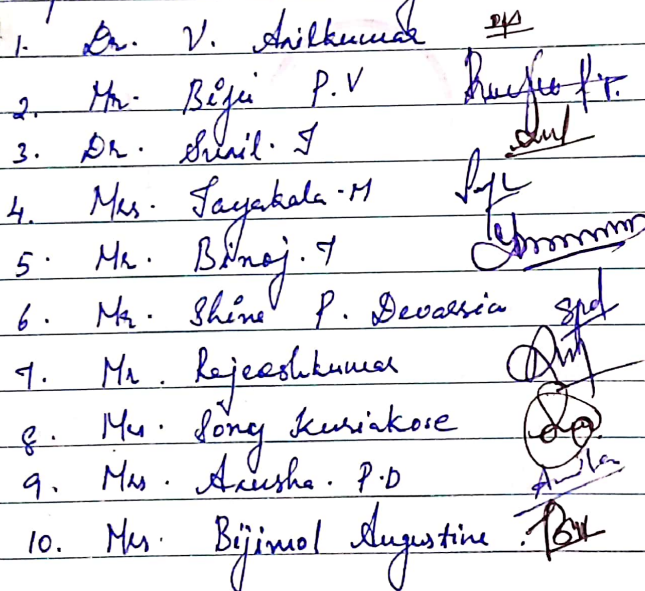 1. Dr. V. Anilkumar
2. Mr. Biju P.V
3. Dr. Sunil. J
4. Mrs. Jayakala. M
5. Mr. Binoj. T
6. Mr. Shine P. Devassia spd
7. Mr. Rajeeshkumar
8. Mrs. Sony Kuriakose
9. Mrs. Anusha. P.D
10. Mrs. Bijimol Augustine